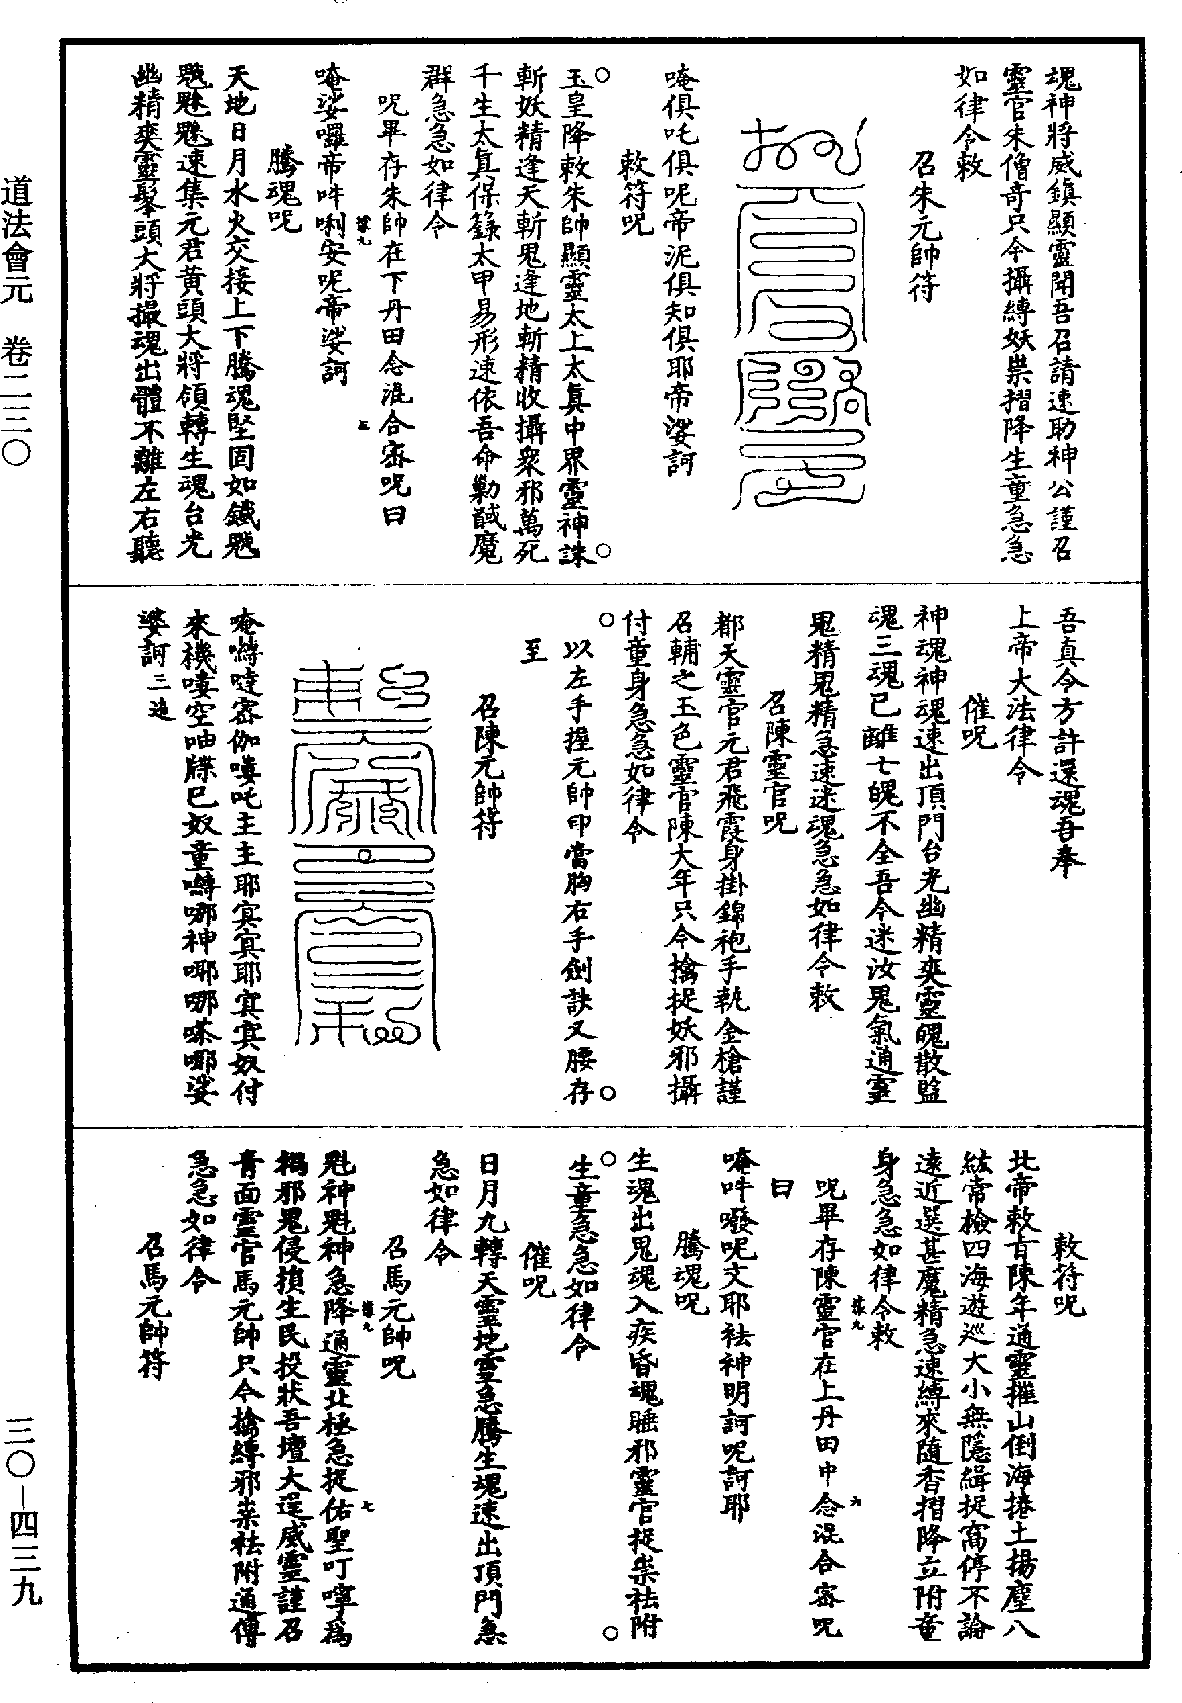 道法會元　卷二三〇
三〇—四三九
魂神將威鎮顯靈聞吾召請速助神公謹召
靈官朱僧奇只今攝縛妖祟摺降生童急急
如律令敕
召朱元帥符
唵俱吒俱呢帝泥俱知俱耶帝娑訶
敕符呪
玉皇降敕朱帥顯靈太上太真中界靈神誅
斬妖精逢天斬鬼逢地斬精收攝衆邪萬死
千生太真保籙太甲易形速依吾命勦馘魔
群急急如律令
呪畢存朱帥在下丹田念混合密呪曰
唵娑囉帝吽唎安呢帝娑訶
騰魂呪
天地日月水火交接上下騰魂堅固如鐵魒
速集元君黃頭大將領轉生魂台光
幽精爽靈髼頭大將撮魂出體不離左右聽
吾真令方許還魂吾奉
上帝大法律令
催呪
神魂神魂速出頂門台光幽精爽靈魄散監
魂三魂已離七魄不全吾今迷汝鬼氣通靈
鬼精鬼精急速迷魂急急如律令敕
召陳靈官呪
都天靈官元君飛霞身掛錦袍手執金槍謹
召輔之玉色靈官陳大年只今擒捉妖邪攝
付童身急急如律令
以左手握元帥印當胸右手劍訣叉腰存
至
召陳元帥符
唵囀噠密伽嘍吒主主耶寅寅耶寅寅奴付
來機嘍空呻牒巳奴童囀哪神哪哪嗏哪娑
婆訶三遍
敕符呪
北帝敕旨陳年通靈摧山倒海捲土揚塵八
紘常檢四海遊巡大小無隱緝捉窩停不論
遠近選甚魔精急速縛來隨香摺降立附童
身急急如律令敕
呪畢存陳靈官在上丹田中念混合密呪
曰
唵吽癈呢文耶祛神明訶呢訶耶
騰魂呪
生魂出鬼魂入疾昏魂睡邪靈官捉祟祛附
生童急急如律令
催呪
日月九轉天靈地靈急騰生魂速出頂門急
急如律令
召馬元帥呪
魁神魁神急降通靈北極急捉佑聖叮嚀爲
禍邪鬼侵損生民投狀吾壇大逞威靈謹召
青面靈官馬元帥只今擒縛邪祟祛附通傳
急急如律令
召馬元帥符